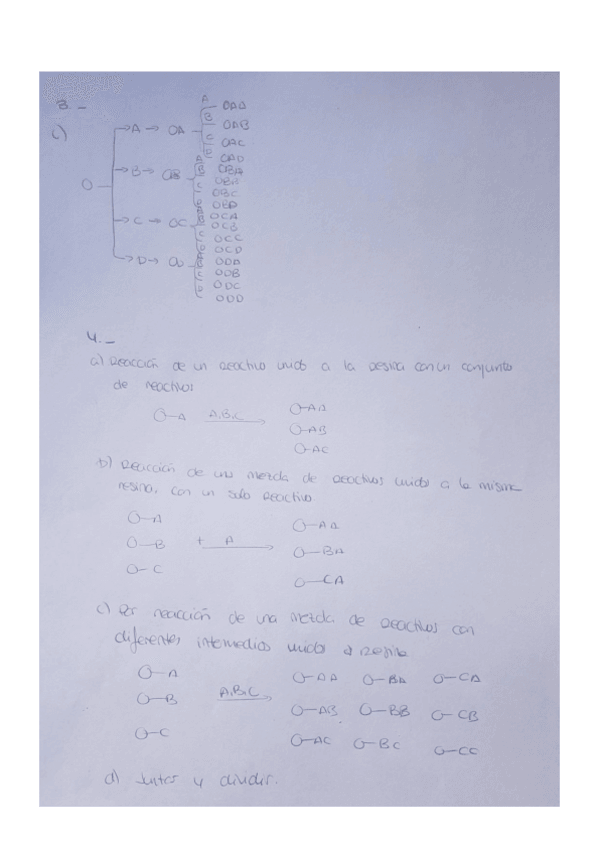 3. -
c)
O → A → OA A OAA
B OAB
C OAC
D OAD
→ B → OB A OBA
B OBB
C OBC
D OBD
→ C → OC A OCA
B OCB
C OCC
D OCD
→ D → OD A ODA
B ODB
C ODC
D ODD
4. -
a) Reacción de un reactivo unido a la resina con un conjunto
de reactivos
O-A A,B,C → O-AA
O-AB
O-AC
b) Reacción de una mezcla de reactivos unidos a la misma
resina, con un solo reactivo
O-A O-AA
O-B + A → O-BA
O-C O-CA
c) Por reacción de una mezcla de reactivos con
diferentes intermedios unidos a resina
O-A O-AA O-BA O-CA
O-B A,B,C → O-AB O-BB O-CB
O-C O-AC O-BC O-CC
d) Juntar y dividir.